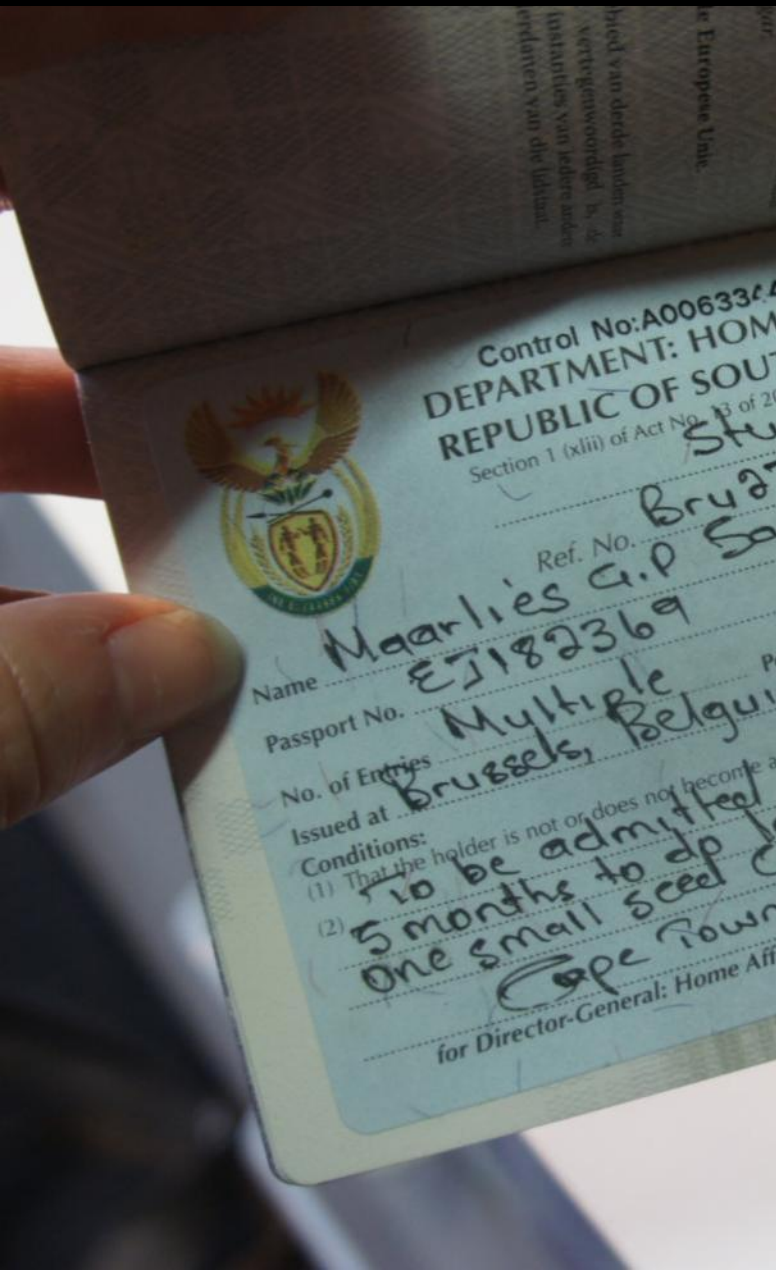 le Europese Unie.
bied van derde landen
vertegenwoordigd is, de
instanties van iedere andere
van die lidstaat.
Control No:A00633
DEPARTMENT: HOM
REPUBLIC OF SOU
Section 1 (xlii) of Act No. 13 of 20
Stu
Ref. No. Bru27
Name Maarlies G.P Sa
Passport No. EJ182369
No. of Entries Multiple
Issued at Brussels, Belgui
Conditions:
(1) That the holder is not or does not become a
(2) To be admitted
5 months to do
One small seed
Cape Town
for Director-General: Home Aff